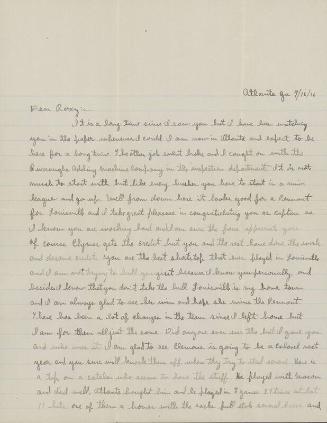 Atlanta Ga 9/16/16
Dear Roxy:-
It is a long time since I saw you but I have been watching
you in the paper whenever I could. I am now in Atlanta and expect to be
here for a long time. The other job went broke and I caught on with the
Burroughs Adding Machine Company in the inspection department. It is not
much to start with but like every busher you have to start in a minor
league and go up. Well from down here it looks good for a Pennant
for Louisville and I take great pleasure in congratulating you as captain as
I know you are working hard and am sure the fans appreciate you
of course Clymer gets the credit but you and the rest have done the work
and deserve credit. You are the best shortstop that ever played in Louisville
and I am not trying to bull you just because I know you personally and
besides I know that you don't take the bull Louisville is my home town
and I am always glad to see her win and hope she wins the Pennant
There has been a lot of changes in the team since I left home but
I am for them all just the same. Did anyone ever use the bat I gave you
and who was it. I am glad to see Clemons is going to be a Colonel next
year and you sure will them off when they try to steal second. Here is
a tip on a catcher who seems to have the stuff. He played with Macon
and did well. Atlanta bought him and he played in 7 games 27 times at bat
11 hits one of them a homer with the sacks full stole several bases and